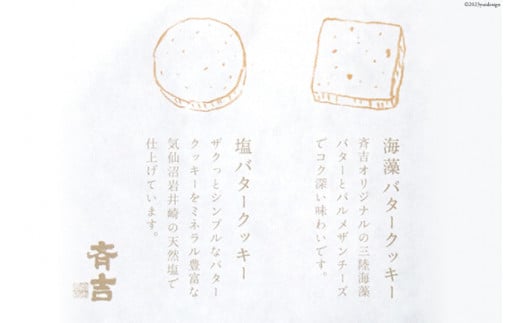 海藻バタークッキー
斉吉オリジナルの三陸海藻
バターとパルメザンチーズ
でコク深い味わいです。
塩バタークッキー
ザクっとシンプルなバター
クッキーをミネラル豊富な
気仙沼岩井崎の天然塩で
仕上げています。
斉吉